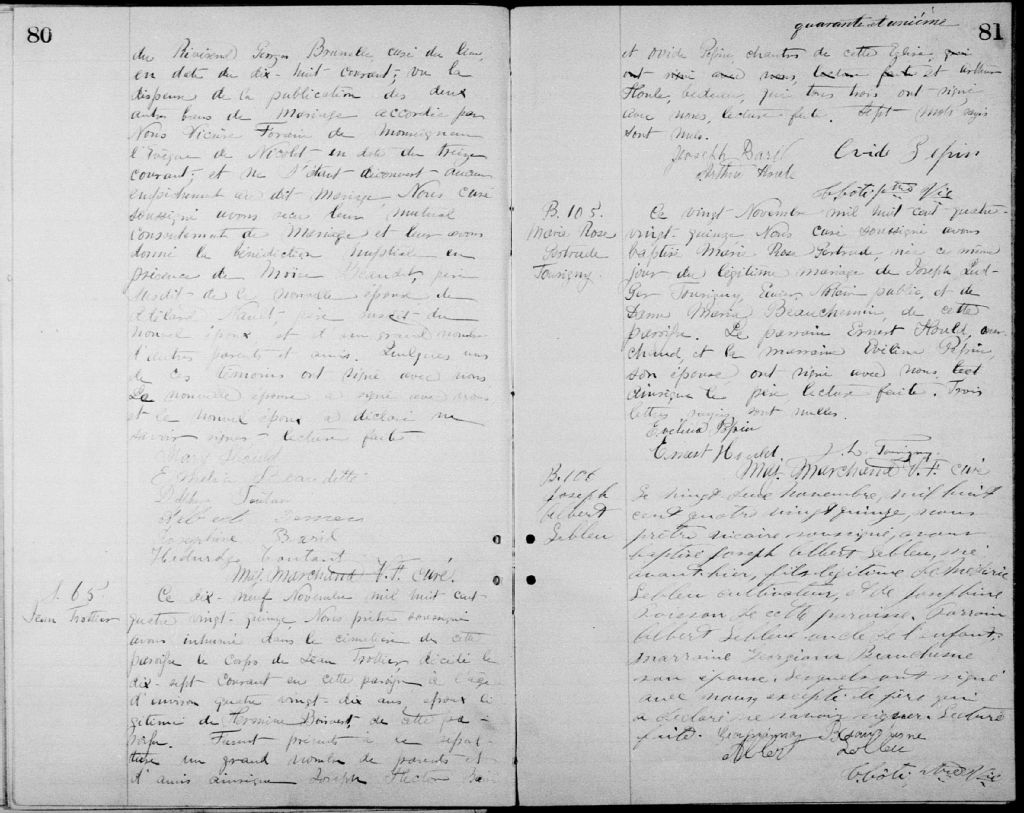 80
du Révérend Georges Brunelle, curé du lieu,
en date du dix-huit courant; vu la
dispense de la publication des deux
autres bans de Mariage accordée par
Nous Vicaire Forain de Monseigneur
l'Evêque de Nicolet en date du treize
courant; et ne s'étant découvert aucun
empêchement au dit mariage Nous curé
soussigné avons reçu leur mutuel
consentement de Mariage et leur avons
donné la bénédiction nuptiale en
présence de Moïse père
susdit de la nouvelle épouse de
père susdit du
nouvel époux et d'un grand nombre
d'autres parents et amis. Quelques uns
de ces témoins ont signé avec nous
La nouvelle épouse a signé avec nous
et le nouvel époux a déclaré ne
savoir signer. lecture faite
Mary
Toutant
Albert
Joséphine Baril
Toutant
Maj. Marchand V. F. curé.
S. 65.
Jean Trottier
Ce dix-neuf Novembre mil huit cent
quatre vingt-quinze, Nous prêtre soussigné
avons inhumé dans le cimetière de cette
paroisse le corps de Jean Trottier, décédé le
dix-sept courant en cette paroisse à l'âge
d'environ quatre vingt-dix ans, époux lé
gitime de Hermine Boisvert, de cette pa-
roisse. Furent présents à sa sépul-
ture un grand nombre de parents et
d'amis ainsique Joseph Hector Baril
quarante et unième
81
et Ovide Pepin, chantres de cette Eglise, qui
ont signé avec nous, lecture faite et Arthur
Houle, bedeau, qui tous trois ont signé
avec nous, lecture faite. Sept mots rayés
sont nuls.
Joseph Baril Ovide Pepin
Arthur Houle
ptre Vic
B. 105.
Marie Rose
Gertrude
Tourigny.
Ce vingt Novembre mil huit cent quatre-
vingt-quinze Nous curé soussigné avons
baptisé Marie Rose Gertrude, née ce même
jour du légitime mariage de Joseph Lud-
ger Tourigny, Ecuier, Notaire public, et de
Dame Maria Beauchemin, de cette
paroisse. Le parrain Ernest Hould, mar-
chand, et la marraine Evelina Pepin,
son épouse ont signé avec nous,
ainsique le père lecture faite. Trois
lettres rayées sont nulles.
Evelina Pepin
Ernest Hould J. L. Tourigny
Maj. Marchand V. F. curé
B. 106
Joseph
Albert
Lebleu
Le vingt deux novembre, mil huit
cent quatre vingt quinze, nous
prêtre vicaire soussigné, avons
baptisé Joseph Albert Lebleu, né
avant hier, fils légitime de Médéric
Lebleu cultivateur, et de Josephine
Poisson de cette paroisse. Parrain
Albert Lebleu oncle de l'enfant,
marraine Georgiana Beauchesne
son épouse. Lesquels ont signé
avec nous, excepté le père qui
a déclaré ne savoir signer. Lecture
faite.
Albert Lebleu
ptre Vic